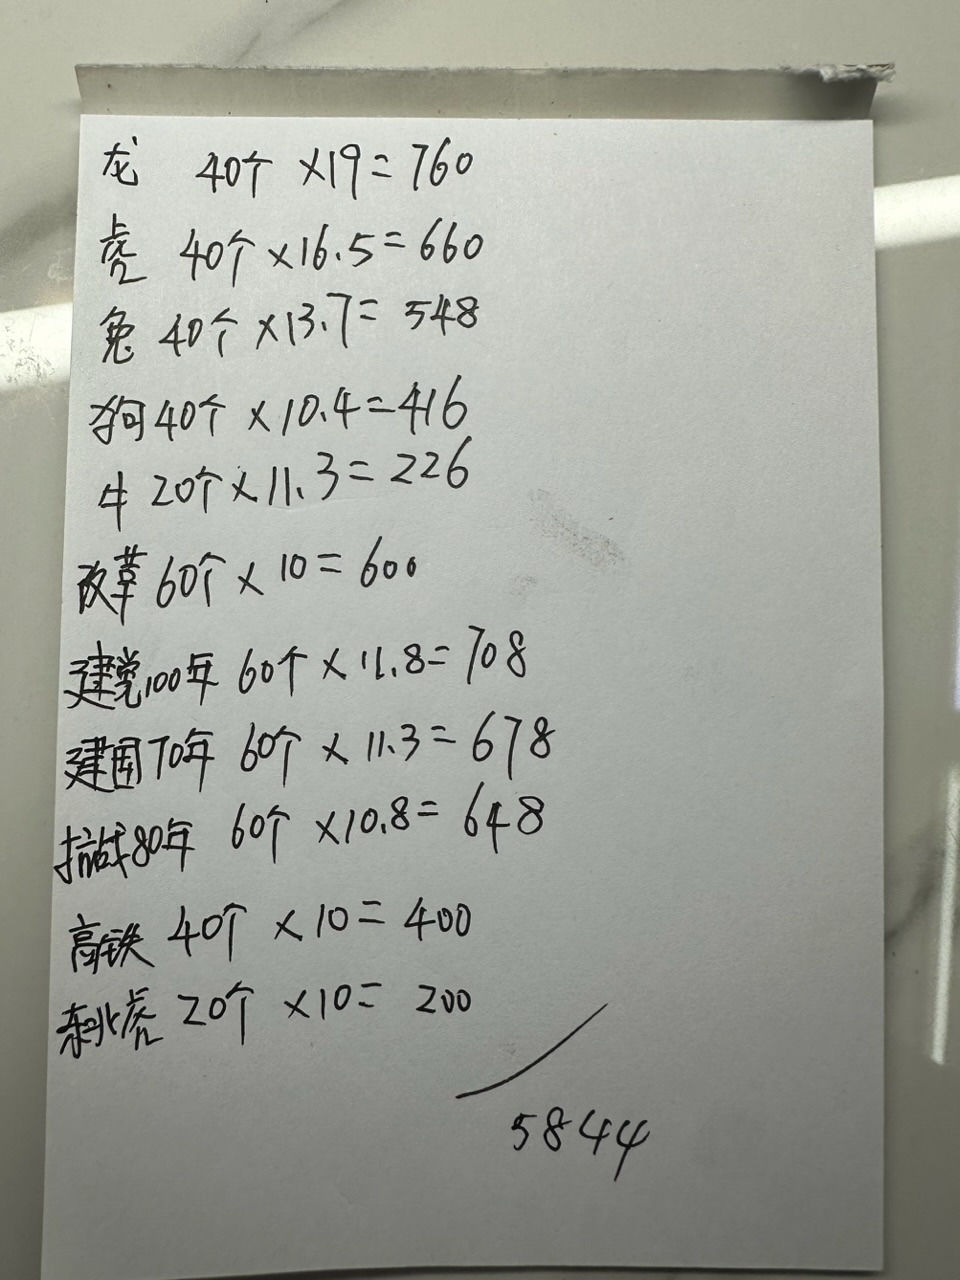 龙 40个 ×19=760
虎 40个×16.5=660
兔 40个×13.7=548
狗40个×10.4=416
牛 20个×11.3=226
改革 60个×10=600
建党100年 60个×11.8=708
建国70年 60个×11.3=678
抗战80年 60个×10.8=648
高铁 40个×10=400
东北虎 20个×10=200
5844